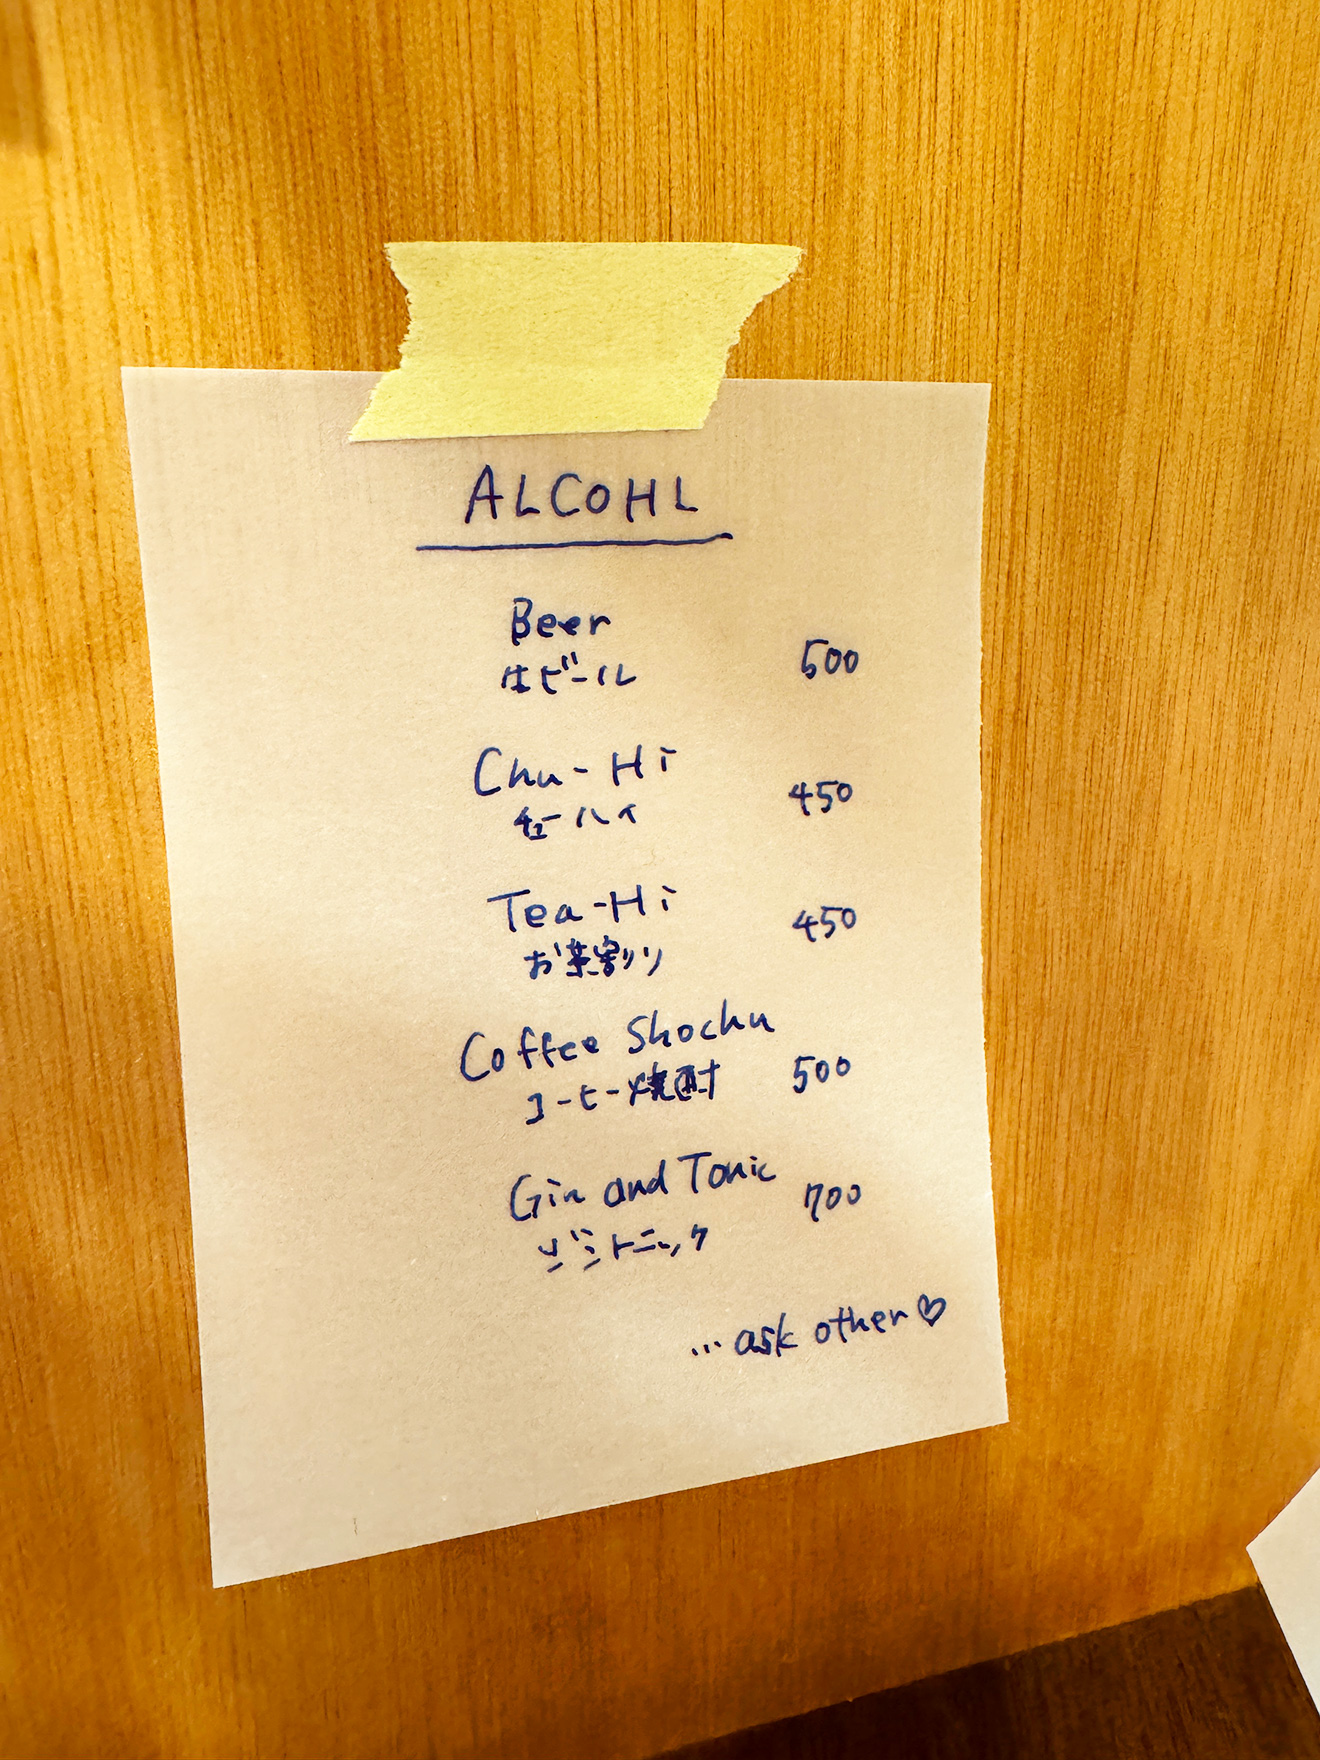 ALCOHL
Beer
生ビール 500
Chu-Hi
チューハイ 450
Tea-Hi
お茶割り 450
Coffee Shochu
コーヒー焼酎 500
Gin and Tonic 700
ジントニック
...ask other♡